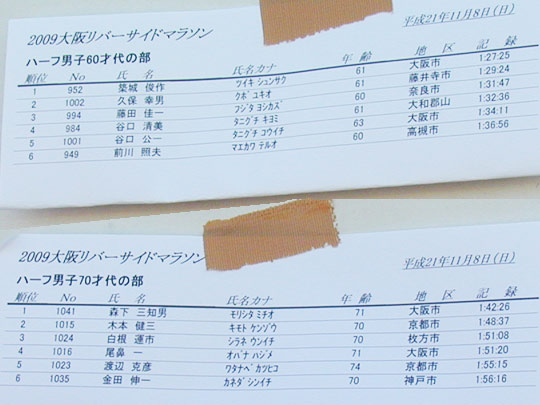 2009大阪リバーサイドマラソン 平成21年11月8日(日)
ハーフ男子60才代の部
順位 No 氏 名 氏名カナ 年 齢 地 区 記 録
1 952 築城 俊作 ツイキ シュンサク 61 大阪市 1:27:25
2 1002 久保 幸男 クボ ユキオ 61 藤井寺市 1:29:24
3 994 藤田 佳一 フジタ ヨシカズ 60 奈良市 1:31:47
4 984 谷口 清美 タニグチ キヨミ 61 大和郡山 1:32:36
5 1001 谷口 公一 タニグチ コウイチ 63 大阪市 1:34:11
6 949 前川 照夫 マエカワ テルオ 60 高槻市 1:36:56
2009大阪リバーサイドマラソン 平成21年11月8日(日)
ハーフ男子70才代の部
順位 No 氏 名 氏名カナ 年 齢 地 区 記 録
1 1041 森下 三知男 モリシタ ミチオ 71 大阪市 1:42:26
2 1015 木本 健三 キモト ケンゾウ 70 京都市 1:48:37
3 1024 白根 運市 シラネ ウンイチ 70 枚方市 1:51:08
4 1016 尾鼻 一 オバナ ハジメ 71 大阪市 1:51:20
5 1023 渡辺 克彦 ワタナベ カツヒコ 74 京都市 1:55:15
6 1035 金田 伸一 カネダ シンイチ 70 神戸市 1:56:16